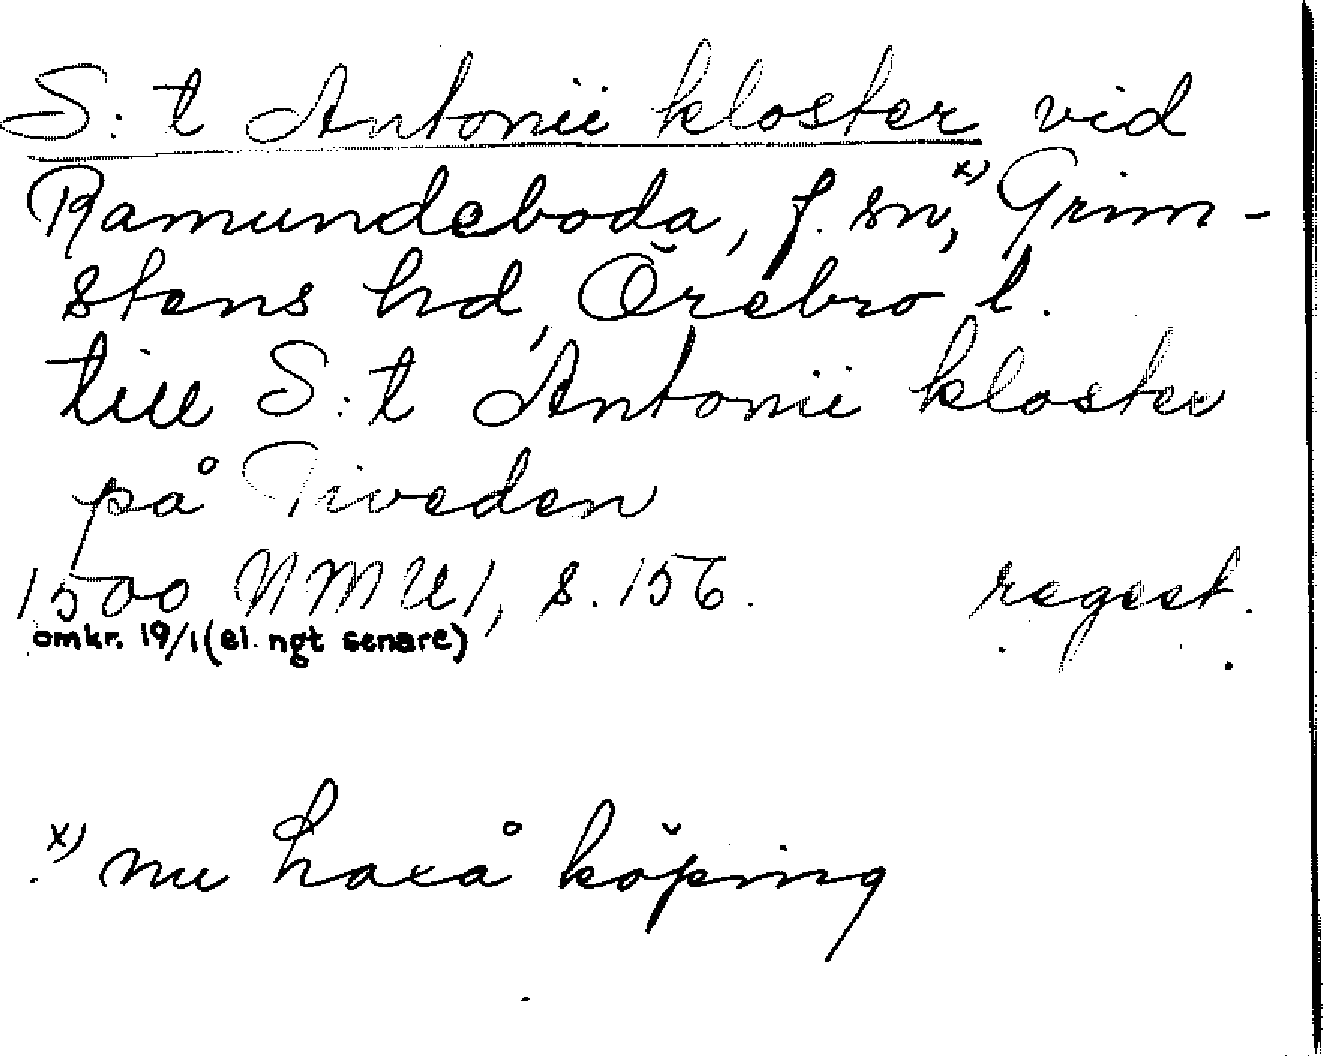 S:t Antonii kloster vid
Ramundeboda, f. sn,ˣ⁾ Grim-
stens hd, Örebro l.
till S:t Antonii kloster
på Tiveden
1500 NMU 1, s. 156. regest.
omkr. 19/1 (el. ngt senare)
x) nu Laxå köping